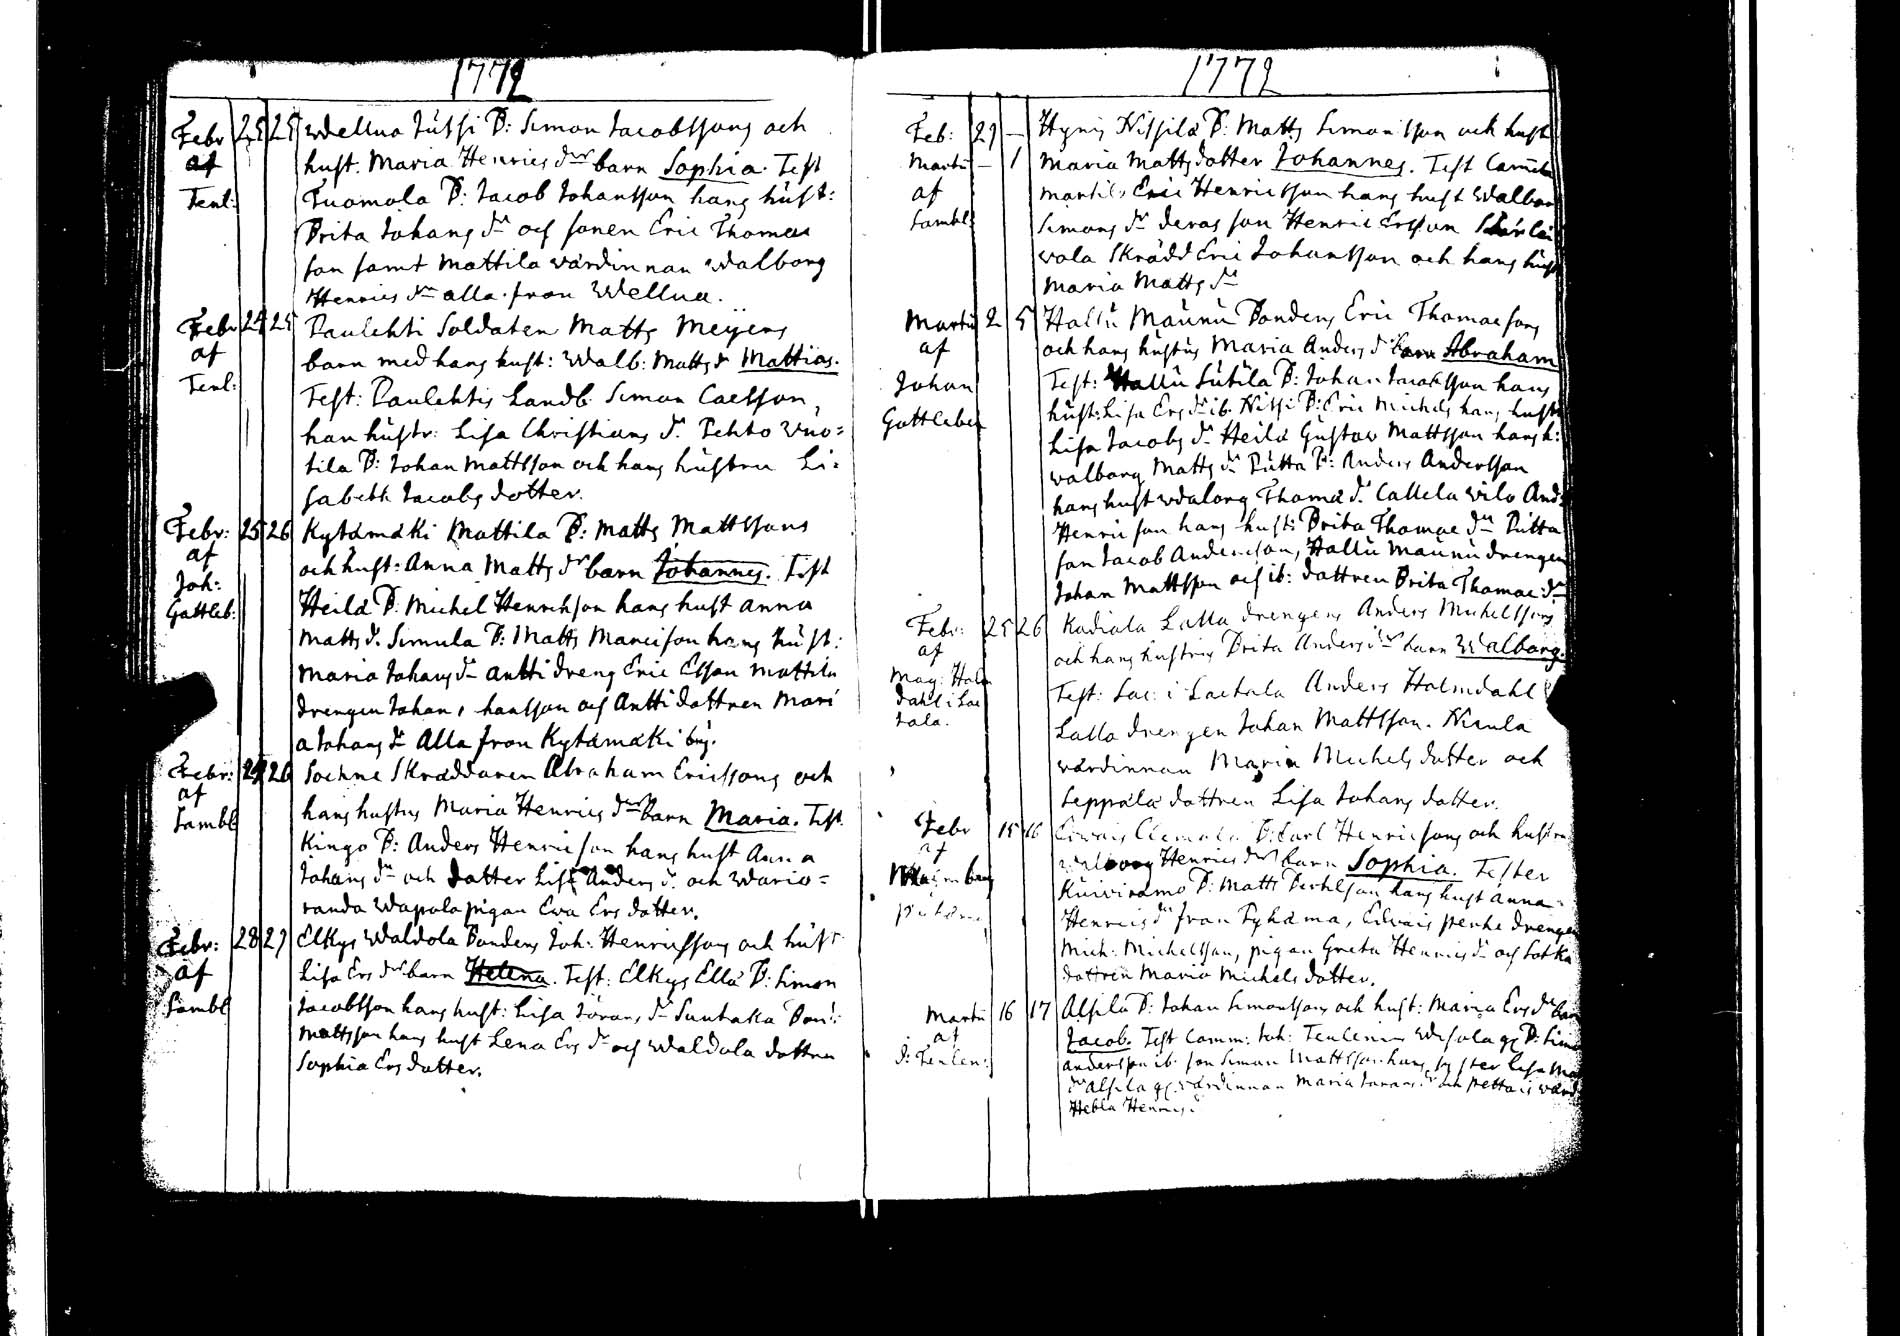 1772
Febr 25 25 Wellua Jussi B: Simon Jacobssons och
af hust. Maria Henrics dr barn Sophia. Test
Tenl: Tuomola B: Jacob Johansson hans hust:
Brita Johans dr och sonen Eric Thomae
son samt Mattila värdinnan Walborg
Henrics dr alla från Wellua.
Febr 24 25 Paulehti Soldaten Matts Meijers
af barn med hans hust: Walb: Matts dr Mattias.
Tenl: Test: Paulehtis Landb. Simon Carlsson,
han hustr: Lisa Christians dr Pehto Uuo=
tila B: Johan Mattsson och hans hustru Li=
sabeth Jacobs dotter.
Febr: 25 26 Kytämäki Mattila B: Matts Mattssons
af och hust: Anna Matts dr barn Johannes. Test
Joh: Heilä B: Michel Henrichson hans hust Anna
Gottleb: Matts dr Simula B: Matts Marcison hans hust:
Maria Johans dr Antti dreng Eric Ersson Mattila
drengen Johan, hansson och Antti dottren Mari
a Johans dr Alla från Kytämäki by.
Febr: 24 26 Soehne Skräddaren Abraham Ericssons och
af hans hustrus Maria Henrics dr barn Maria. Test
Sambl Kingo B: Anders Henricson hans hust Anna
Johans dr och dotter Lisa Anders dr och Wario=
randa Wapola pigan Ewa Ers dotter.
Febr: 28 29 Elkys Waldola Bondens Joh: Henricssons och hust
af Lisa Ers dr barn Helena. Test: Elkys Ellä B: Simon
Sambl Jacobsson hans hust: Lisa Jörans dr Suutaka Bond:
Mattsson hans hust Lena Ers dr och Waldola dottren
Sophia Ers dotter.
1772
Feb: 29 — Hynis Nissilä B: Matts Simonsson och hust
Martii — 1 Maria Matts dotter Johannes. Test
af Martils Eric Henricsson hans hust Walbor
Sambl: Simons dr deras son Henric Ersson
wala Skrädd Eric Johansson och hans hust
Maria Matts dr
Martii 2 5 Hallu Maunu Bondens Eric Thomaesons
af och hans hustrus Maria Anders dr barn Abraham
Johan Test: Hallu Sutila B: Johan Jacobsson hans
Gottleben hust: Lisa Ers dr ib. Nissi B: Eric Michels hans hust
Lisa Jacobs dr Heilä Gustav Mattsson hans h:
Walborg Matts dr Putta B: Anders Andersson
hans hust Walborg Thomae dr Callela wilo And
Henricson hans hust: Brita Thomae dr Putta
son Jacob Andersson, Hallu Maunu drengen
Johan Mattsson och ib: dottren Brita Thomae dr
Febr: 25 26 Kadiala Lalla drengens Anders Michelssons
af och hans hustrus Brita Anders dr barn Walborg.
Mag: Holm Test: Sac: i Laetala Anders Holmdahl
dahl i Lae Lalla drengen Johan Mattsson. Nicula
tala. wärdinnan Maria Michels dotter och
Seppälä dottren Lisa Johans dotter.
Febr 15 16 B: Carl Henricsons och hustru
af Walborg Henrics dr barn Sophia. Tester
Kuiviramo B: Matts Bertelson hans hust Anna
Henrics dr från Pyhäma, perhe drengen
Mich: Michelsson, pigan Greta Henrics dr och Sotka
dottren Maria Michels dotter.
Martii 16 17 Alsila B: Johan Simonssons och hust: Maria Ers dr barn
af Jacob. Test Comm: Joh: Tenlenius B: Simo
J: Tenlen: andersson ib. son Simon Mattsson hans syster Lisa Ma
dr Alsila wärdinnan Maria dr och wärd
Hebla Henrics dr